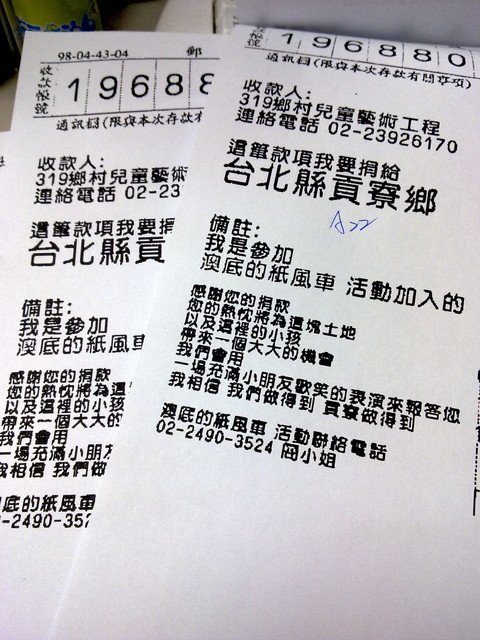 98-04-43-04
郵
收款帳號
19688
通訊欄(限與本次存款有
收款人:
319鄉村兒童藝術
連絡電話 02-23
這筆款項我要捐
台北縣貢
備註:
我是參加
澳底的紙風車
感謝您的捐款
您的熱枕將為這
以及這裡的小孩
帶來一個大大的
我們會用
一場充滿小朋友
我相信 我們做
底的紙風車
-2490-352
帳號
196880
通訊欄(限與本次存款有關事項)
收款人:
319鄉村兒童藝術工程
連絡電話 02-23926170
這筆款項我要捐給
台北縣貢寮鄉
備註:
我是參加
澳底的紙風車 活動加入的
感謝您的捐款
您的熱枕將為這塊土地
以及這裡的小孩
帶來一個大大的機會
我們會用
一場充滿小朋友歡笑的表演來報答您
我相信 我們做得到 貢寮做得到
澳底的紙風車 活動聯絡電話
02-2490-3524 岡小姐